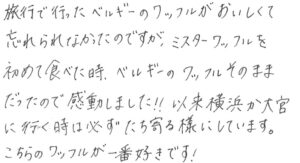 旅行で行ったベルギーのワッフルがおいしくて
忘れられなかったのですが、ミスターワッフルを
初めて食べた時、ベルギーのワッフルそのまま
だったので感動しました!!以来横浜か大宮
に行く時は必ずたち寄る様にしています。
こちらのワッフルが一番好きです!